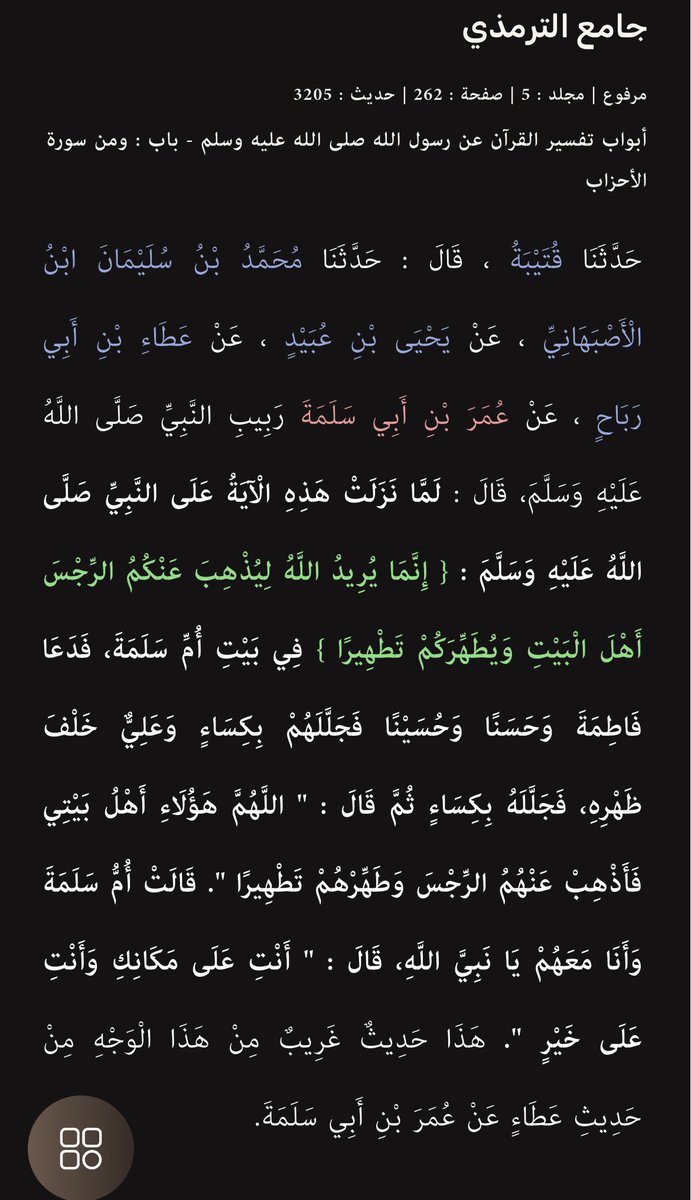 جامع الترمذي
مرفوع | مجلد : 5 | صفحة : 262 | حديث : 3205
أبواب تفسير القرآن عن رسول الله صلى الله عليه وسلم - باب : ومن سورة
الأحزاب
حَدَّثَنَا قُتَيْبَةُ ، قَالَ : حَدَّثَنَا مُحَمَّدُ بْنُ سُلَيْمَانَ ابْنُ
الْأَصْبَهَانِيِّ ، عَنْ يَحْيَى بْنِ عُبَيْدٍ ، عَنْ عَطَاءِ بْنِ أَبِي
رَبَاحٍ ، عَنْ عُمَرَ بْنِ أَبِي سَلَمَةَ رَبِيبِ النَّبِيِّ صَلَّى اللَّهُ
عَلَيْهِ وَسَلَّمَ، قَالَ : لَمَّا نَزَلَتْ هَذِهِ الْآيَةُ عَلَى النَّبِيِّ صَلَّى
اللَّهُ عَلَيْهِ وَسَلَّمَ : { إِنَّمَا يُرِيدُ اللَّهُ لِيُذْهِبَ عَنْكُمُ الرِّجْسَ
أَهْلَ الْبَيْتِ وَيُطَهِّرَكُمْ تَطْهِيرًا } فِي بَيْتِ أُمِّ سَلَمَةَ، فَدَعَا
فَاطِمَةَ وَحَسَنًا وَحُسَيْنًا فَجَلَّلَهُمْ بِكِسَاءٍ وَعَلِيٌّ خَلْفَ
ظَهْرِهِ، فَجَلَّلَهُ بِكِسَاءٍ ثُمَّ قَالَ : " اللَّهُمَّ هَؤُلَاءِ أَهْلُ بَيْتِي
فَأَذْهِبْ عَنْهُمُ الرِّجْسَ وَطَهِّرْهُمْ تَطْهِيرًا ". قَالَتْ أُمُّ سَلَمَةَ
وَأَنَا مَعَهُمْ يَا نَبِيَّ اللَّهِ، قَالَ : " أَنْتِ عَلَى مَكَانِكِ وَأَنْتِ
عَلَى خَيْرٍ ". هَذَا حَدِيثٌ غَرِيبٌ مِنْ هَذَا الْوَجْهِ مِنْ
حَدِيثِ عَطَاءٍ عَنْ عُمَرَ بْنِ أَبِي سَلَمَةَ.